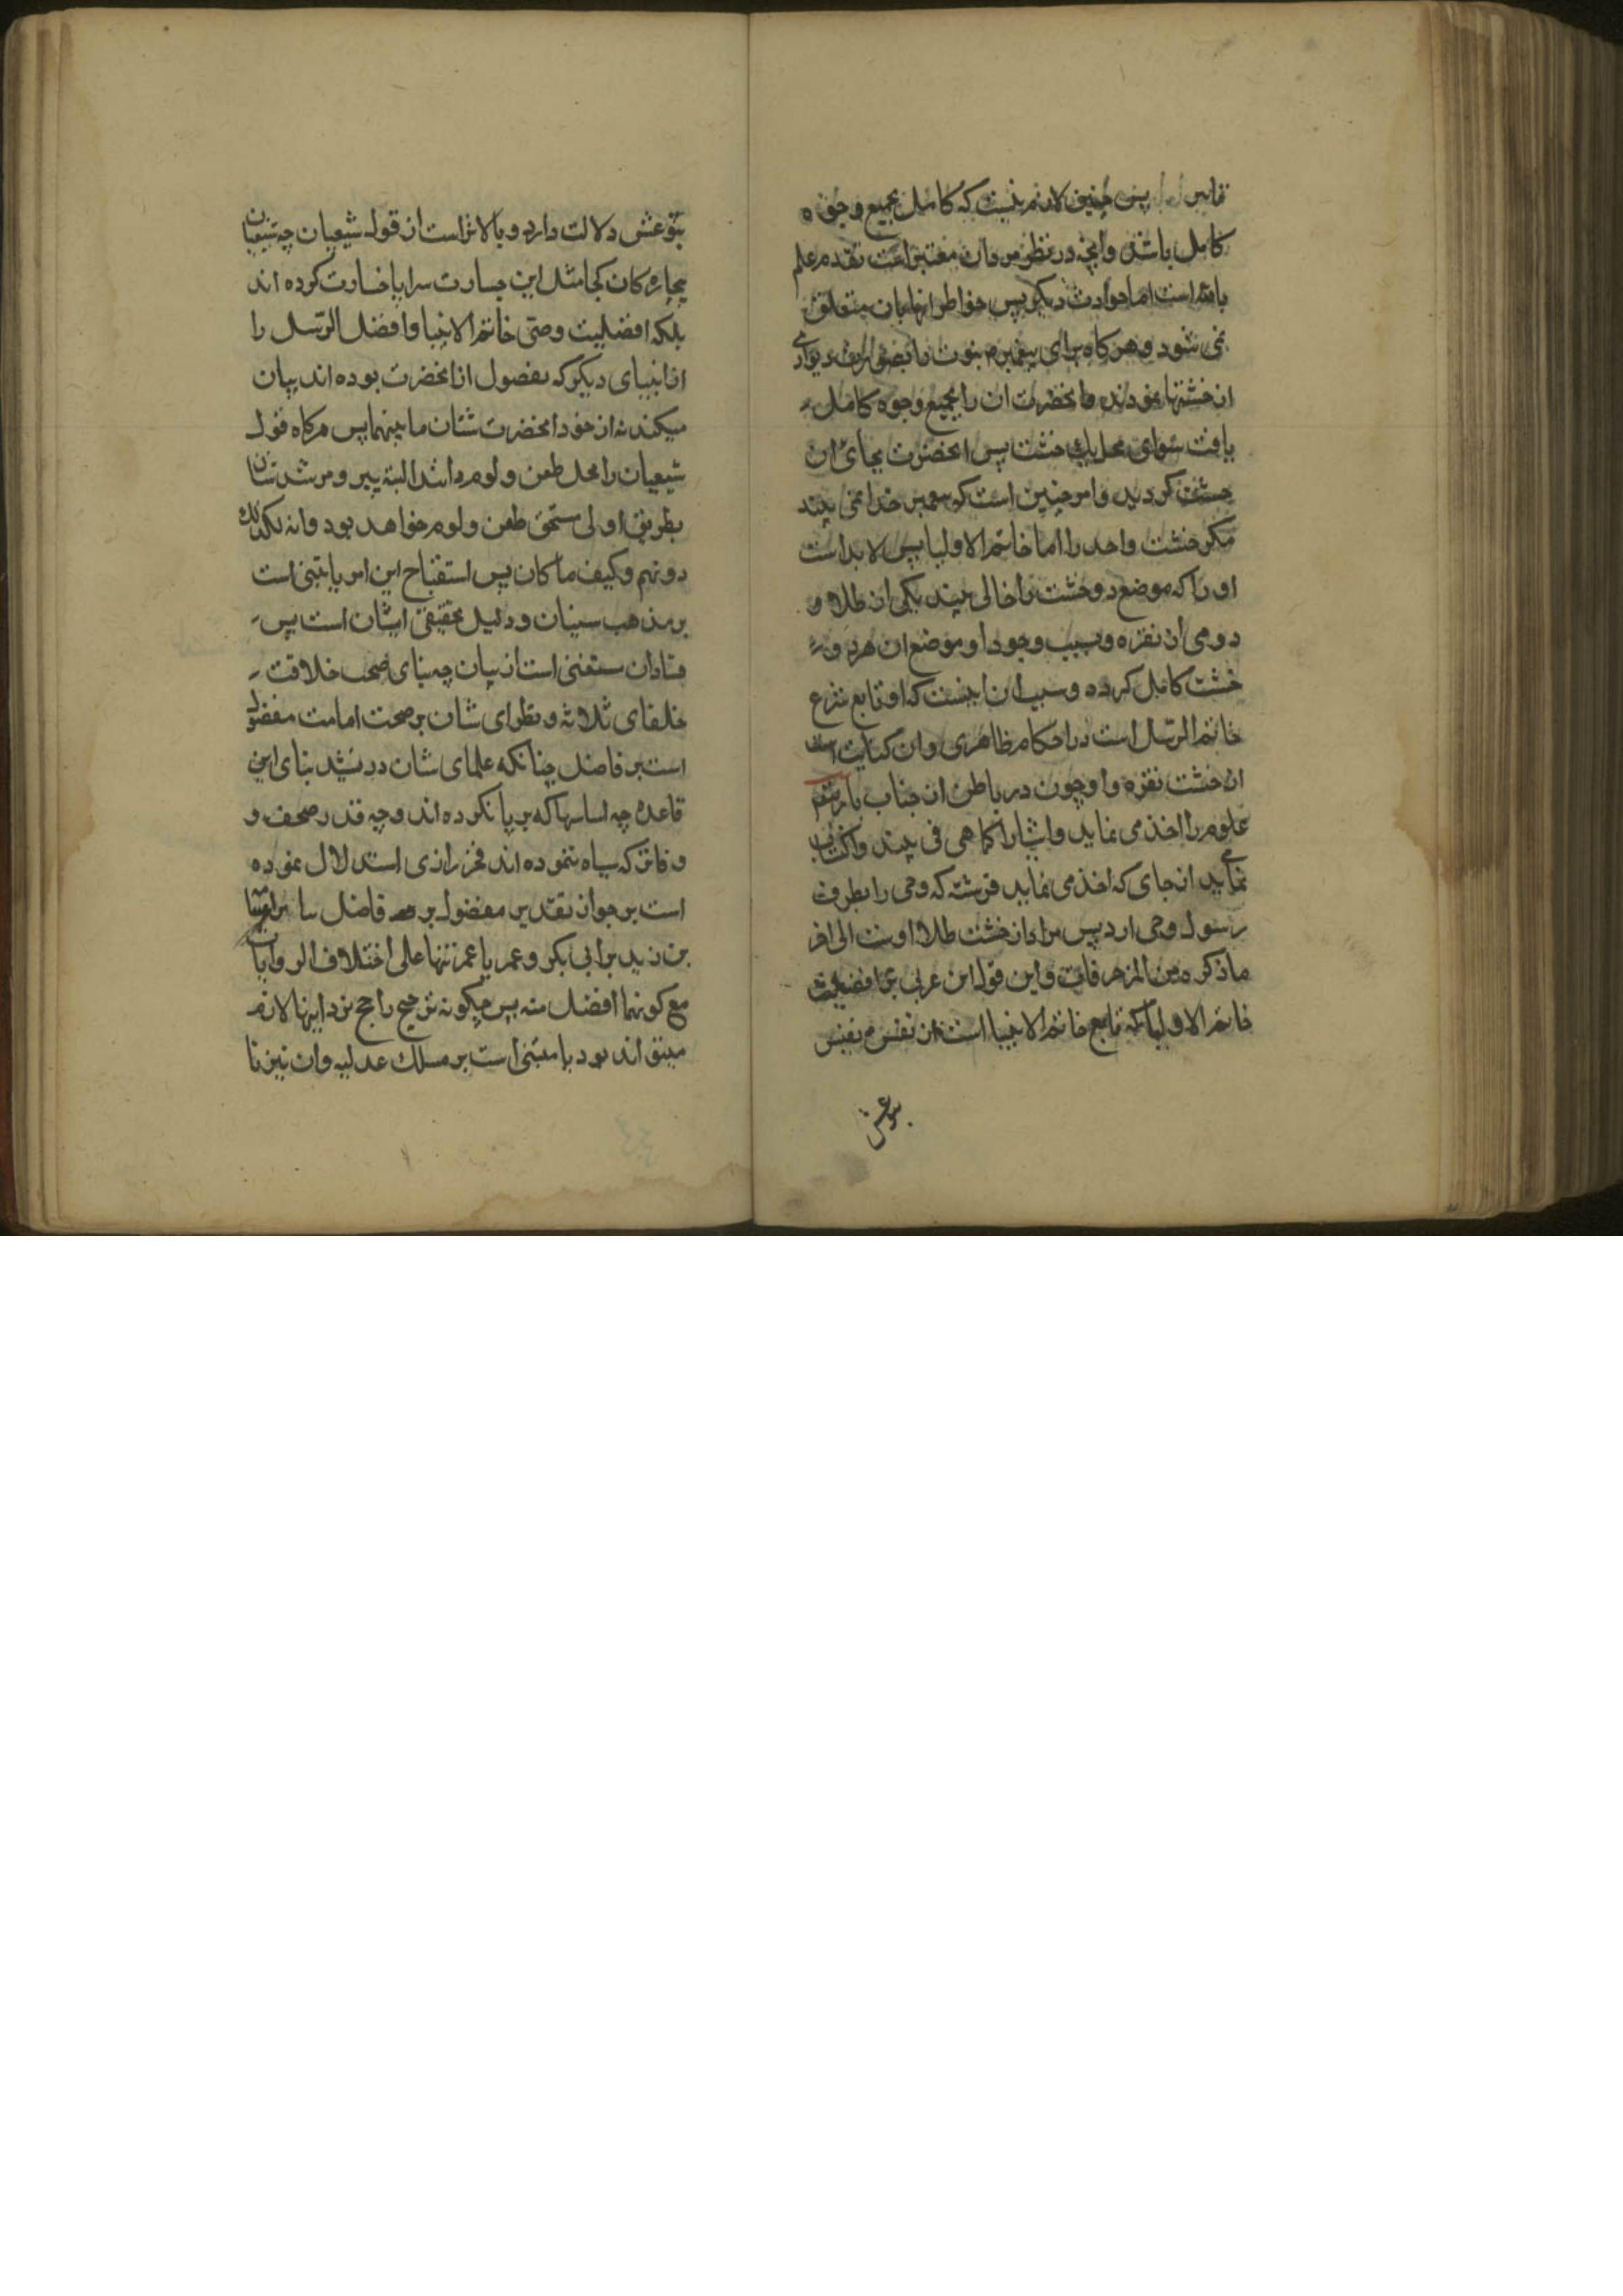 پس چنین لازم نیست که کامل بجمیع وجوه
کامل باشد وانچه در نظر مردان معتبر است تقدم علم
بالله است اما حوادث دیکر پس خواطر انها بان متعلق
نمی شود وهرکاه برای پیغمبرم نبوت را بصورت دیواری
از خشتها نمودند وانحضرت ان را بجمیع وجوه کامل
یافت سوای محل یک خشت پس انحضرت بجای ان
خشت کردید وامر چنین است که پیغمبر خدا نمی بیند
مکر خشت واحد را اما خاتم الاولیا پس لابد است
او را که موضع دو خشت را خالی بیند یکی از طلا و
دومی از نقره وبسبب وجود او موضع ان هر دو
خشت کامل کرده وسبب ان اینست که او تابع شرع
خاتم الرسل است در احکام ظاهری وان کنایت است
از خشت نقره واو چون در باطن از جناب باری
علوم را اخذ می نماید واشیا را کما هی می بیند
نماید از جای که اخذ می نماید فرشته که وحی را بطرف
رسول وحی ارد پس مراد از خشت طلا اوست الی اخر
ما ذکره من المزخرفات واین قول ابن عربی بر افضلیت
خاتم الاولیا که تابع خاتم الانبیا است از نفس نفیس
متبوعش
متبوعش دلالت دارد وبالاتر است از قول شیعیان چه شیعیان
بیچاره کان کجا مثل این جسارت سراپا خسارت کرده اند
بلکه افضلیت وصی خاتم الانبیا وافضل الرسل را
از انبیای دیکر که مفضول از انحضرت بوده اند بیان
میکنند نه از خود انحضرت شتان ما بینهما پس هرکاه قول
شیعیان را محل طعن ولوم دانند البته پیر ومرشد شان
بطریق اولی مستحق طعن ولوم خواهد بود وانه لکذلک
دونهم وکیف ما کان پس استقباح این امر یا مبتنی است
بر مذهب سنیان ودلیل تحقیقی ایشان است پس
فسادان مستغنی است از بیان چه بنای صحت خلافت
خلفای ثلاثه ونظرای شان بر صحت امامت مفضول
است بر فاضل چنانکه علمای شان در تشیید بنای این
قاعده چه اساسها که بر پا نکرده اند وچه قدر صحف و
دفاتر که سیاه ننموده اند فخر رازی استدلال نموده
است بر جواز تقدیم مفضول بر فاضل
بن زید بر ابی بکر وعمر یا عمر تنها علی اختلاف الروایات
مع کونهما افضل منه پس چکونه ترجیح راجح نزد اینها لازم
میتواند بود یا مبتنی است بر مسلک عدلیه وان نیز نا